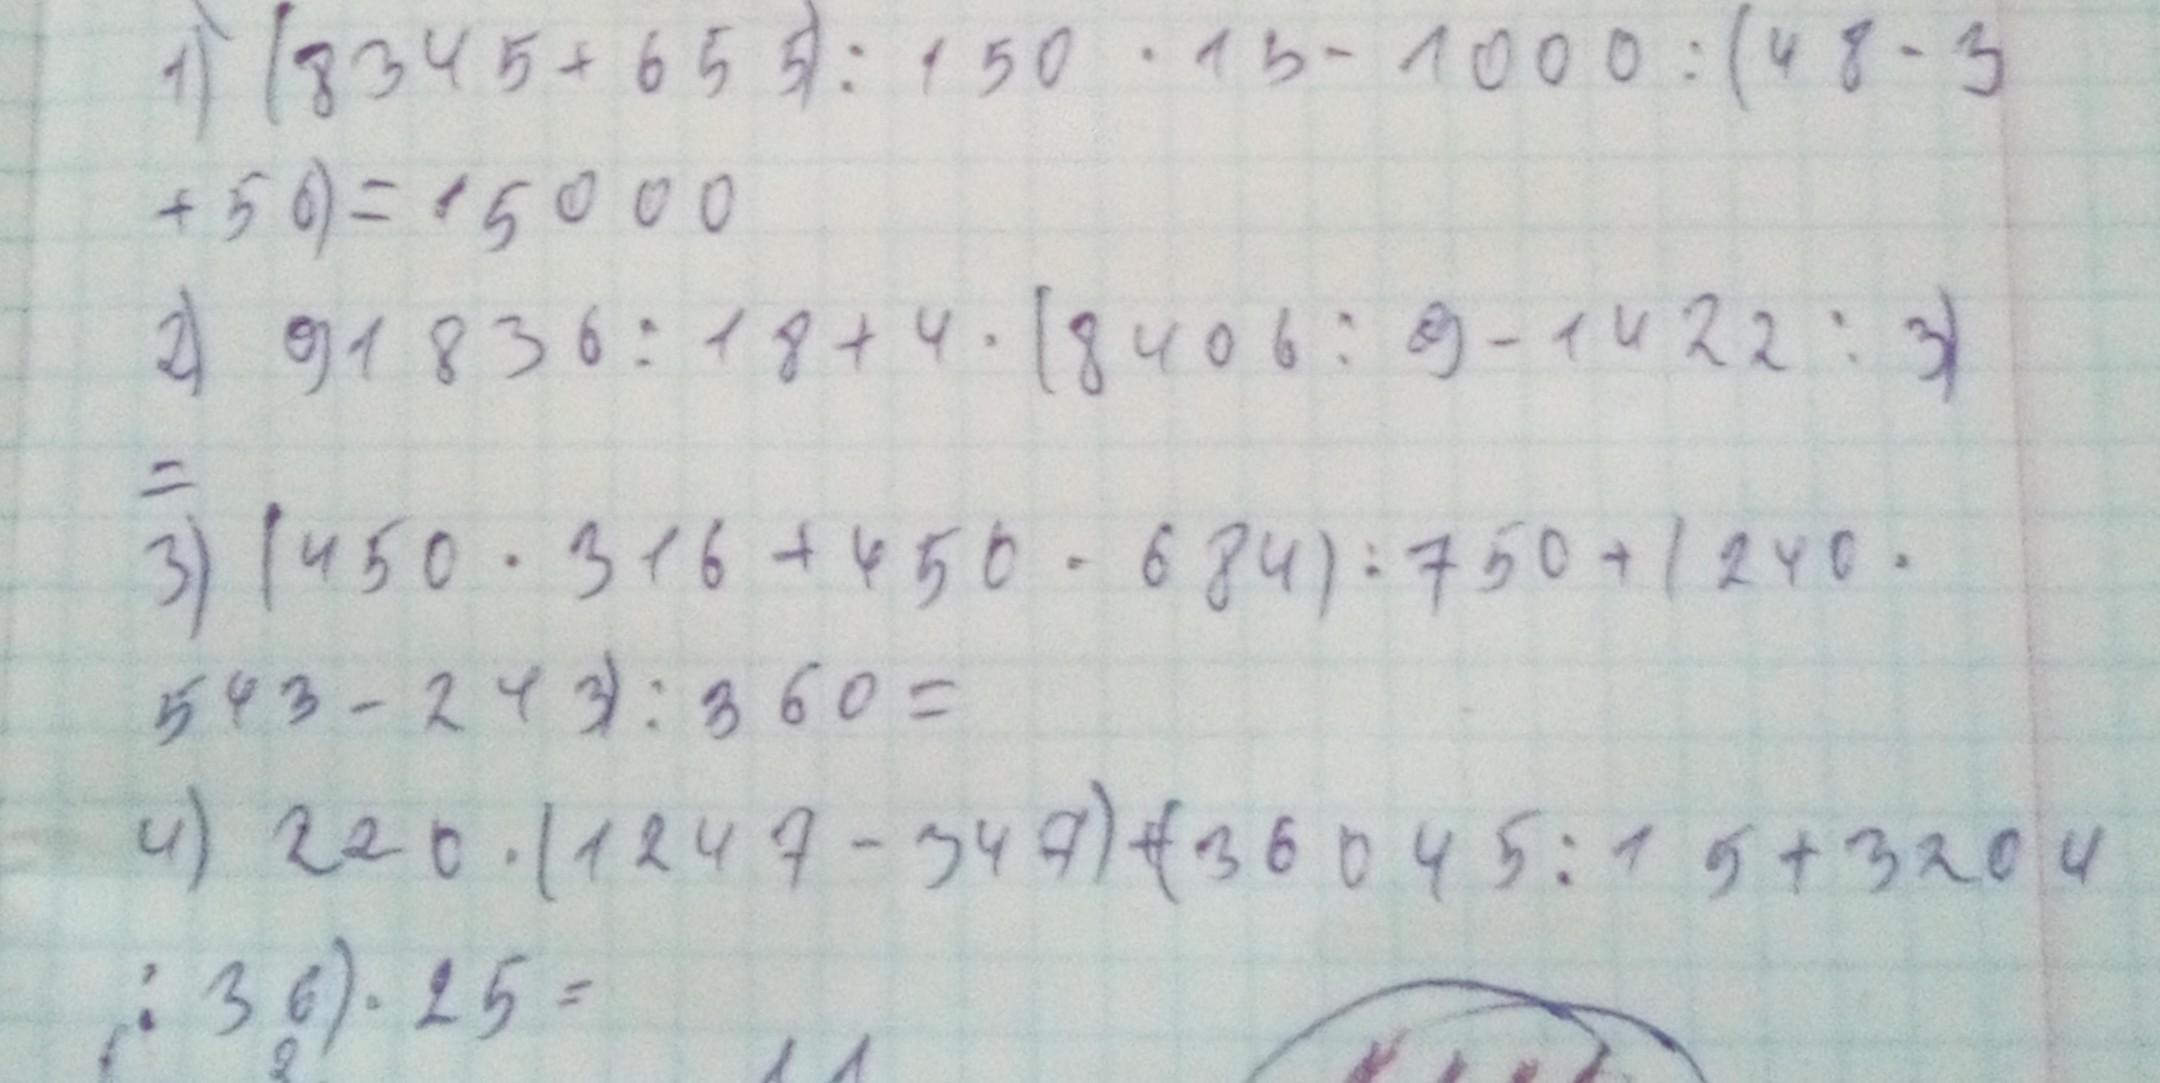 1) (8345+655):150·15-1000:(48-3
+50)=15000
2) 91836:18+4·(8406:9-1422:3)
=
3) (450·316+450·684):750+(240·
543-243):360=
4) 220·(1247-347)+(36045:15+3204
:36)·25=